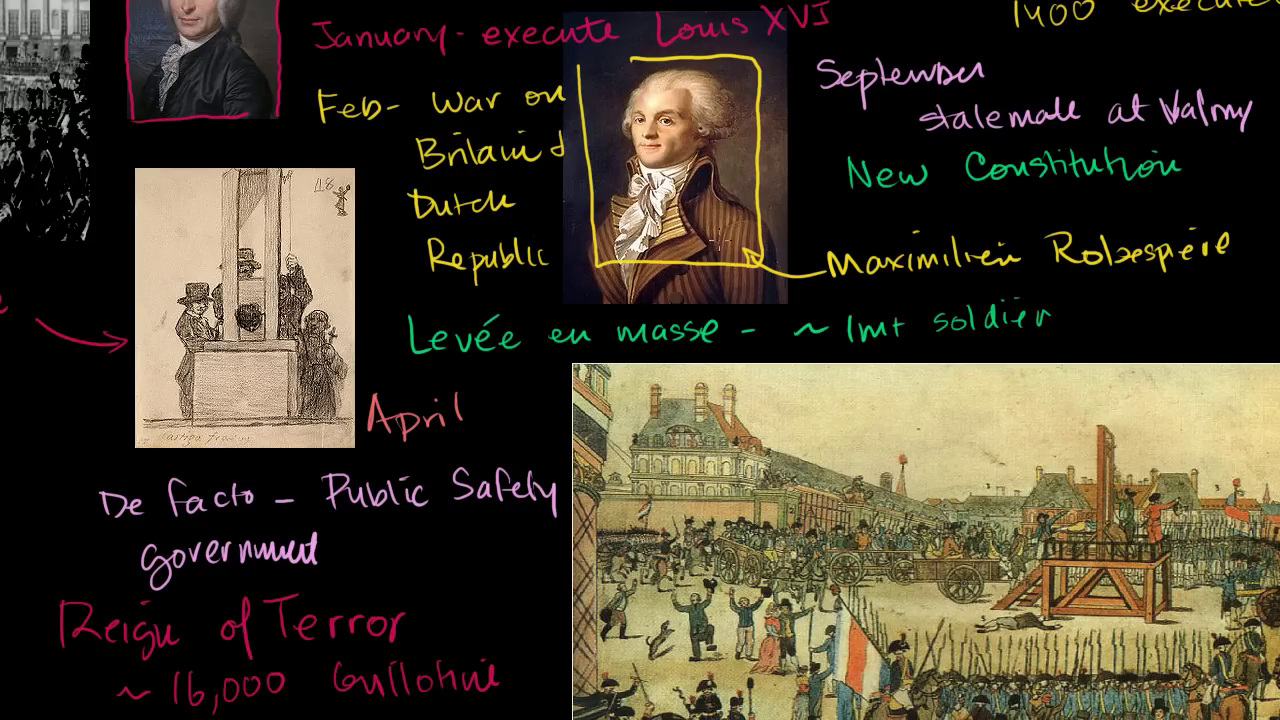 January - execute Louis XVI
1400 execute
Feb - War on
Britain &
Dutch
Republic
September
stalemate at Valmy
New Constitution
Maximilien Robespierre
Levée en masse - ~ 1m+ soldier
April
De facto - Public Safety
government
Reign of Terror
~ 16,000 Guillotine